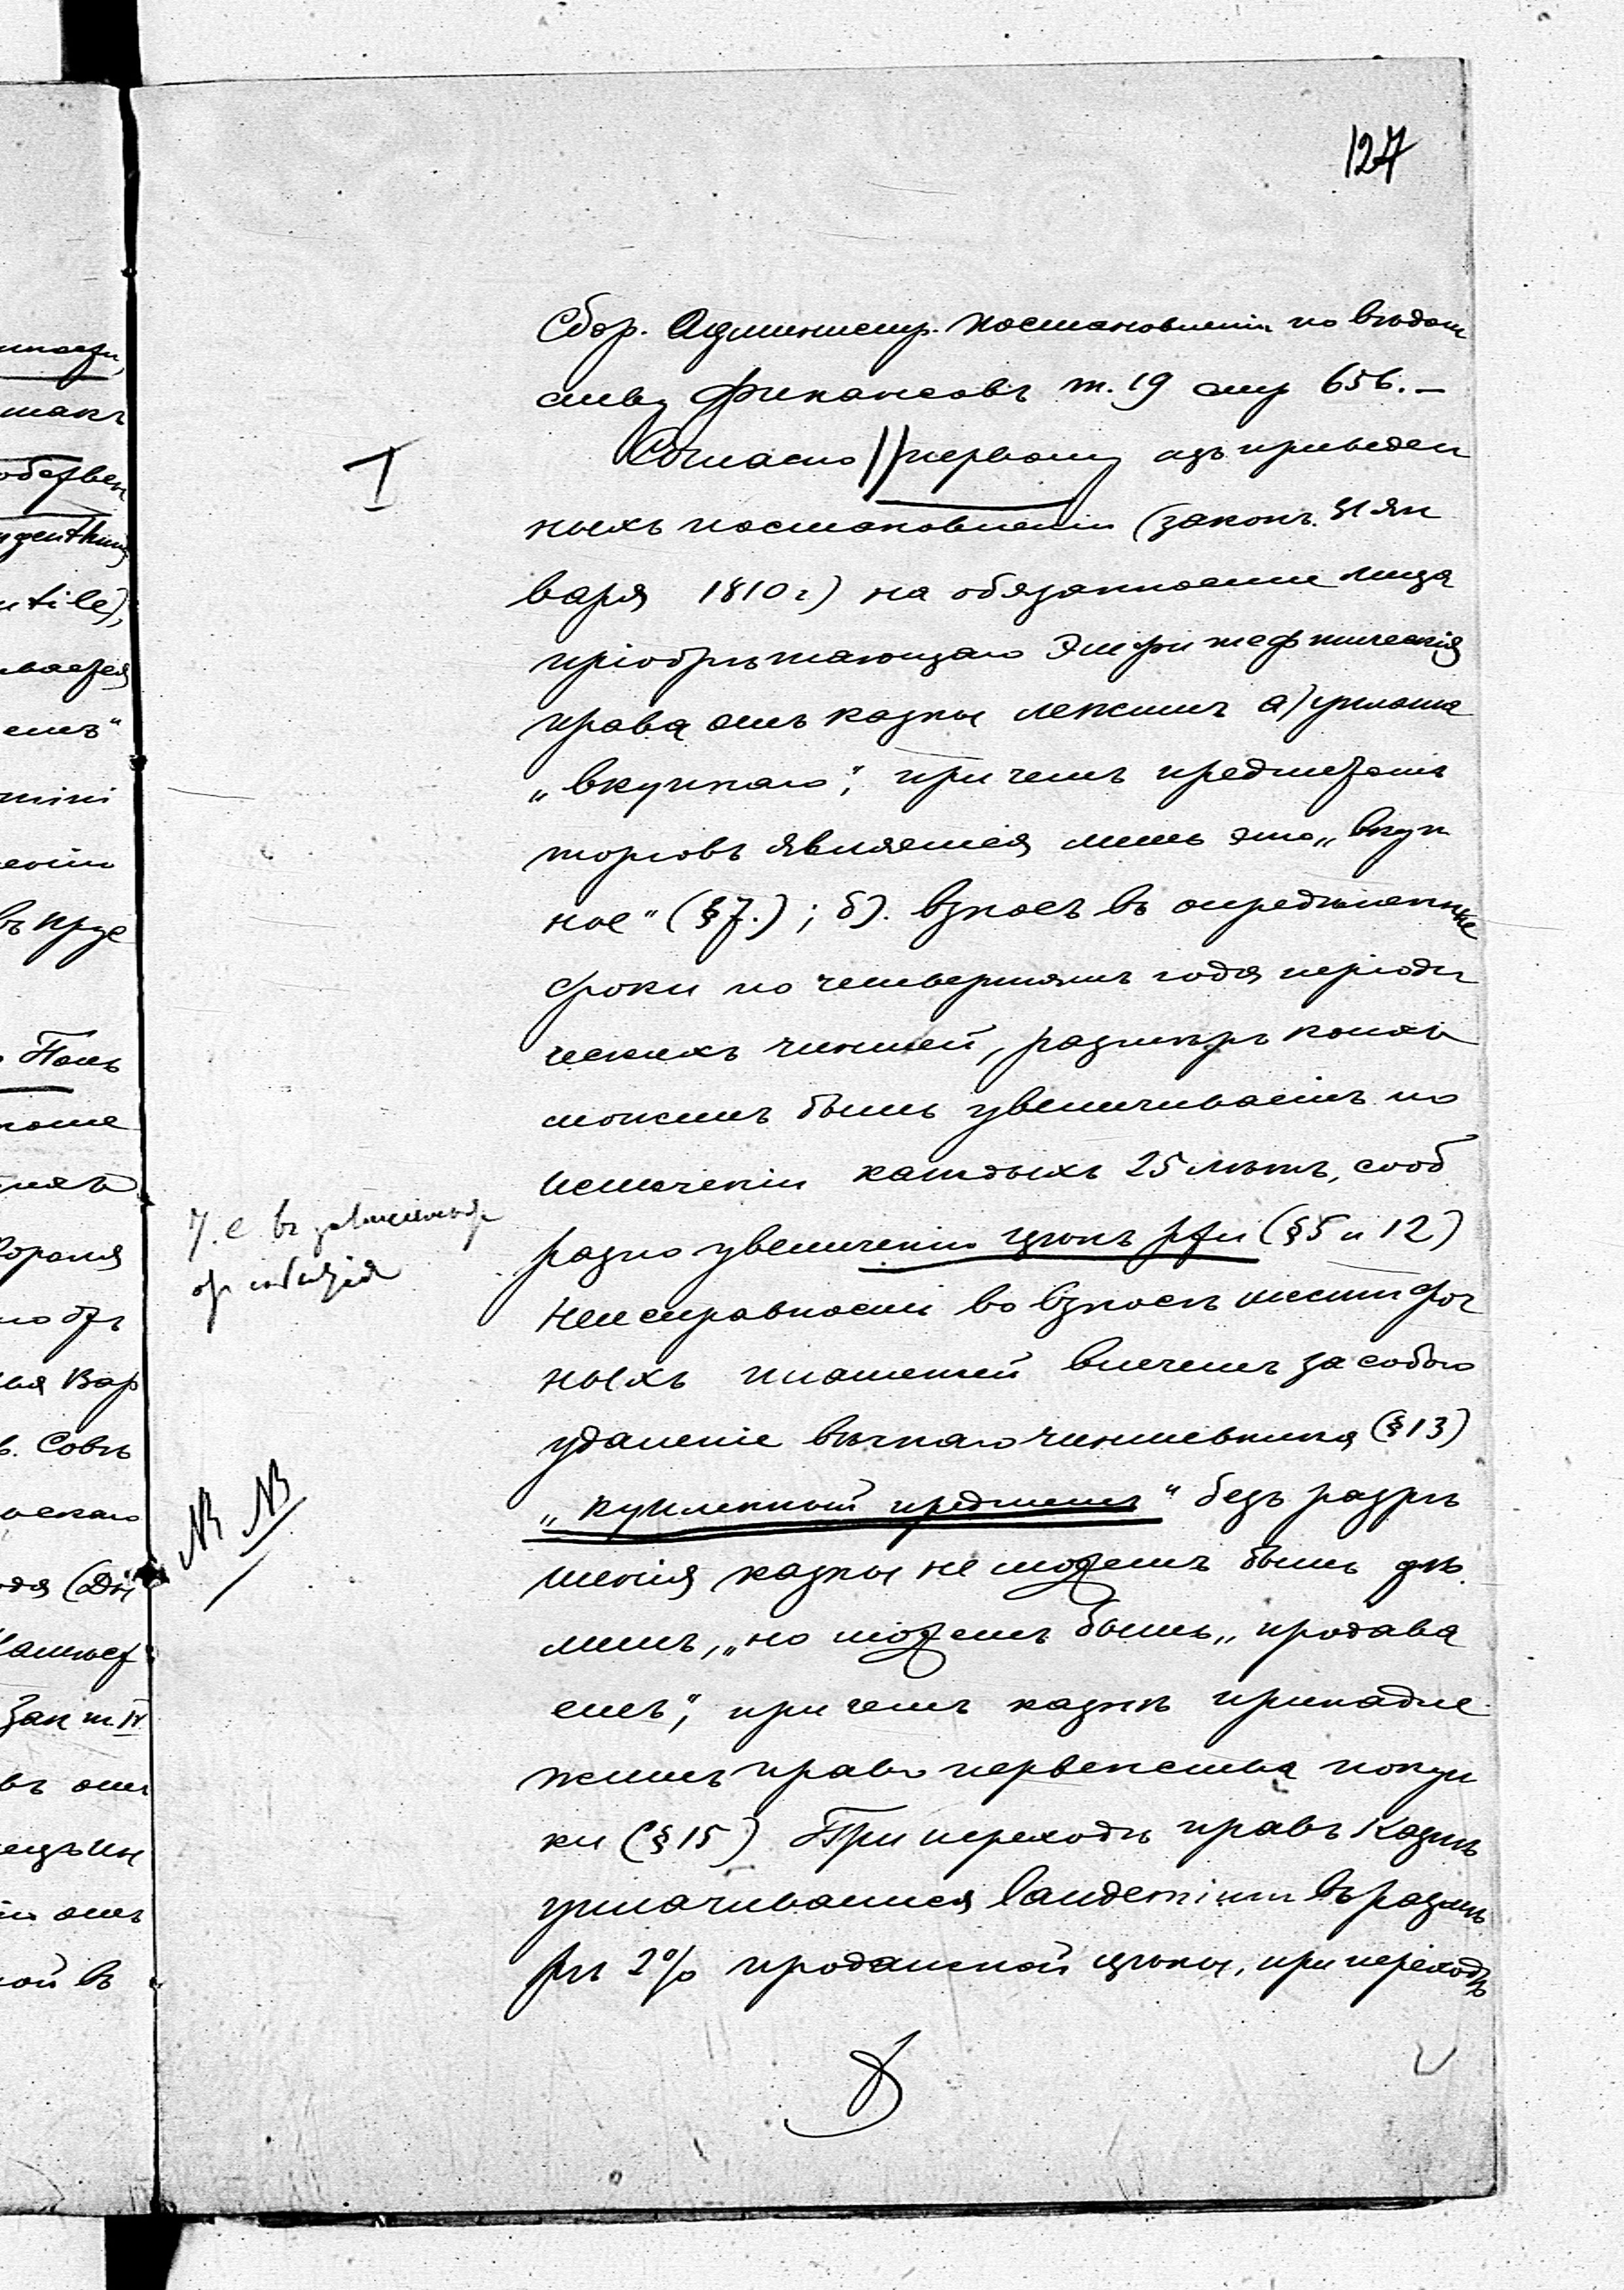 127
Сбор. Администр. постановленій по вѣдом
ству Финансовъ т. 19 стр 656. –
I
Согласно // первому изъ приведен
ныхъ постановленій (законъ 31 Ян
варя 1810 г) на обязанности лица
пріобрѣтающаго Эмфитефтическія
права отъ казны лежитъ а) уплата
„вкупнаго", при чемъ предметомъ
торговъ является лишь это „вкуп
ное" (§ 7.); б). взносъ въ опредѣленные
сроки по четвертямъ года періоди
ческихъ чиншей, размѣръ коихъ
можетъ быть увеличиваемъ по
истеченіи каждыхъ 25 лѣтъ, сооб
разно увеличенію цѣнъ ржи (§ 5 и 12)
Т. е въ зависимости
от
Неисправность во взносѣ шести сроч
ныхъ платежей влечетъ за собою
удаленіе вѣчнаго чиншевника (§ 13)
NB NB
„купленный предметъ" безъ разрѣ
шенія казны не можетъ быть дѣ
лимъ, „но можетъ быть „продава
емъ", при чемъ казнѣ принадле
житъ право первенства покуп
ки (§ 15) При переходѣ правъ Казнѣ
уплачивается laudemium въ размѣ
рѣ 2% продажной цѣны, при переходѣ
ностью
такъ
ntile),
емъ"
mini
въ пруе
Поль
Вар
в. Совѣ
года (Дн
Зак т IV
въ отн
отъ
ой въ